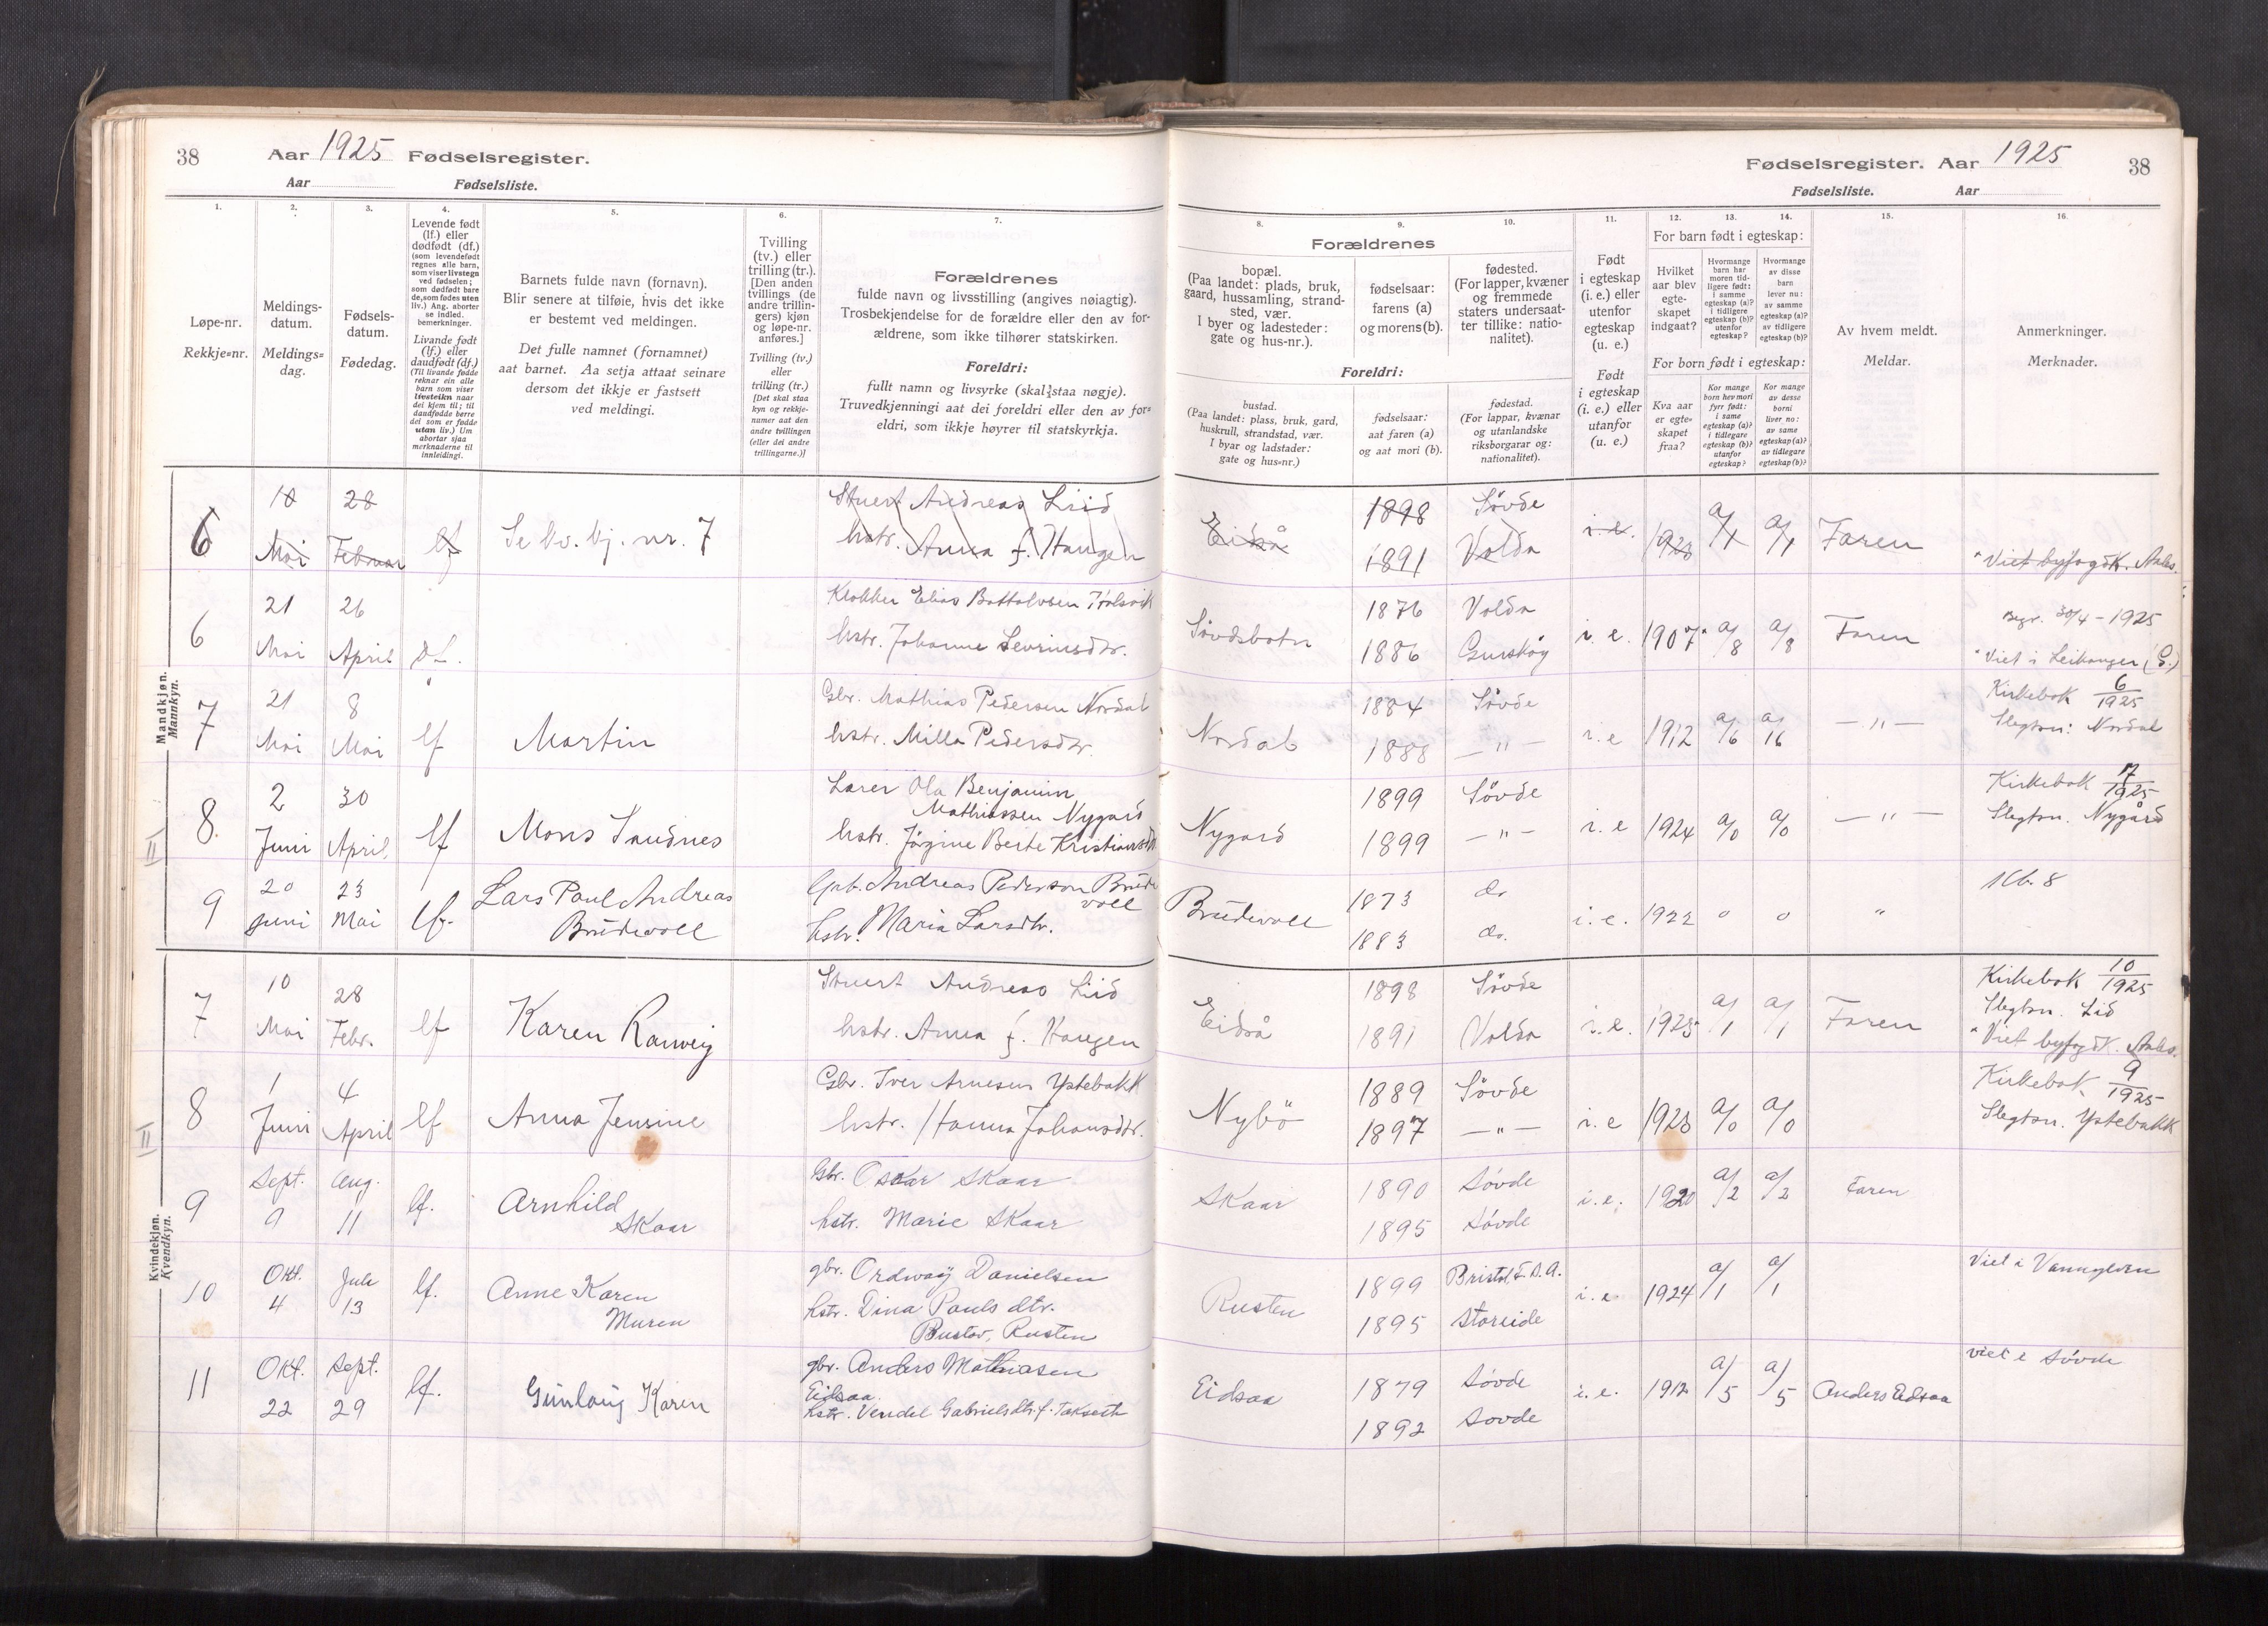 38 Aar 1925 Fødselsregister.
Aar Fødselsliste.
Fødselsregister. Aar 1925 38
Fødselsliste. Aar
1. 2. 3. 4. 5. 6. 7.
Løpe-nr.
Rekkje=nr.
Meldings-
datum.
Meldings=
dag.
Fødsels-
datum.
Fødedag.
Levende født
(lf.) eller
dødfødt (df.)
(som levendefødt
regnes alle barn,
som viser livstegn
ved fødselen;
som dødfødt bare
de, som fødes uten
liv.) Ang. aborter
se indled.
bemerkninger.
Livande født
(lf.) eller
daudfødt (df.)
(Til livande fødde
reknar ein alle
barn som viser
livsteikn naar
dei kjem til; til
daudfødde berre
dei som er fødde
utan liv.) Um
abortar sjaa
merknaderne til
innleidingi.
Barnets fulde navn (fornavn).
Blir senere at tilføie, hvis det ikke
er bestemt ved meldingen.
Det fulle namnet (fornamnet)
aat barnet. Aa setja attaat seinare
dersom det ikkje er fastsett
ved meldingi.
Tvilling
(tv.) eller
trilling (tr.).
[Den anden
tvillings (de
andre trillin-
gers) kjøn
og løpe-nr.
anføres.]
Tvilling (tv.)
eller
trilling (tr.)
[Det skal staa
kyn og rekkje-
numer aat den
andre tvillingen
(eller dei andre
trillingarne.)]
Forældrenes
fulde navn og livsstilling (angives nøiagtig).
Trosbekjendelse for de forældre eller den av for-
ældrene, som ikke tilhører statskirken.
Foreldri:
fullt namn og livsyrke (skal staa nøgje).
Truvedkjenningi aat dei foreldri eller den av for=
eldri, som ikkje høyrer til statskyrkja.
8. 9. 10. 11. 12. 13. 14. 15. 16.
Forældrenes
bopæl.
(Paa landet: plads, bruk,
gaard, hussamling, strand-
sted, vær.
I byer og ladesteder:
gate og hus-nr.).
fødselsaar:
farens (a)
og morens (b).
fødested.
(For lapper, kvæner
og fremmede
staters undersaat-
ter tillike: natio-
nalitet).
Foreldri:
bustad.
(Paa landet: plass, bruk, gard,
huskrull, strandstad, vær.
I byar og ladstader:
gate og hus=nr.)
fødselsaar:
aat faren (a)
og aat mori (b).
fødestad.
(For lappar, kvænar
og utanlandske
riksborgarar og:
nationalitet).
Født
i egteskap
(i. e.) eller
utenfor
egteskap
(u. e.)
Født
i egteskap
(i. e.) eller
utanfor
egteskap
(u. e.)
For barn født i egteskap:
Hvilket
aar blev
egte-
skapet
indgaat?
Hvormange
barn har
moren tid-
ligere født:
i samme
egteskap (a)?
i tidligere
egteskap (b)?
utenfor
egteskap?
Hvormange
av disse
barn
lever nu:
av samme
egteskap (a)?
av tidligere
egteskap (b)?
For born født i egteskap:
Kva aar
er egte=
skapet
fraa?
Kor mange
born hev mori
fyrr født:
i same
egteskap (a)?
i tidlegare
egteskap (b)?
utanfor
egteskap?
Kor mange
av desse
borni
liver no:
av same
egteskap (a)?
av tidlegare
egteskap (b)?
Av hvem meldt.
Meldar.
Anmerkninger.
Merknader.
Mandkjøn.
Mannkyn.
6 18 Mai 28 Februar lf Se kv. kj. nr. 7 Stuert Andreas Liid
hstr. Anna f. Haugen
Eidså 1898 Søvde i.e. 1923 a/1 a/1 Faren
1891 Volda
"Viet byfogdk. Aales.
6 21 Mai 26 April df. Klokker Elias Bottolvsen
hstr. Johanne Severinsdtr.
Søvdsbotn 1876 Volda i.e. 1907 a/8 a/8 Faren Begr. 30/4 - 1925
1886 Gurskøy "Viet i Leikanger
7 21 Mai 8 Mai lf Martin Gbr. Mathias Pedersen Nordal
hstr. Milla Pedersdtr.
Nordal 1884 Søvde i.e 1912 a/6 a/6 — " — Kirkebok 6/1925
1888 — " — Slegtsn: Nordal
8. 2 Juni 30 April lf Mons Sandnes Lærer Ola Benjamin
Mathiassen Nygard
hstr. Jørgine Berte Kristiansdtr
Nygard 1899 Søvde i.e 1924 a/0 a/0 — " — Kirkebok 7/1925
1899 — " — Slegtsn. Nygård
9 20 juni 23 Mai lf. Lars Paul Andreas
Brudevoll
Grb. Andreas Pederson Brude
voll
hstr. Maria Larsdtr.
Brudevoll 1873 do i.e. 1922 0 0 " Kb. 8
1883 do.
Kvindekjøn.
Kvendkyn.
7 10 Mai 28 Febr. lf Karen Ranveig Stuert Andreas Liid
hstr. Anna f. Haugen
Eidså 1898 Søvde i.e. 1923 a/1 a/1 Faren Kirkebok 10/1925
1891 Volda Slegtsn. Lid
"Viet byfogdk. Aales.
8 1 Juni 4 April lf Anna Jensine Gbr. Iver Arnesen Ystebakk
hstr. Hanna Johansdtr.
Nybö 1889 Søvde i.e 1923 a/0 a/0 Kirkebok 9/1925
1897 — " — Slegtsn. Ystebakk
9 Sept. 9 Aug. 11 lf. Arnhild
Skaar
Gbr. Oskar Skaar
hstr. Marie Skaar
Skaar 1890 Søvde i.e. 1920 a/2 a/2 Faren
1895 Søvde
10 Okt. 4 Juli 13 lf. Anne Karen
Muren
gbr. Ordway Danielsen
hstr. Dina Pauls dtr.
Bustav, Rusten
Rusten 1899 Bristol, F.S.A. i.e. 1924 a/1 a/1 Viet i Vannylven
1895 Storeide
11 Okt. 22 Sept. 29 lf. Gunlaug Karen gbr. Anders Mathiasen
Eidsaa
hstr. Vendel Gabrielsdtr. f. Takseth
Eidsaa 1879 Søvde i.e. 1912 a/5 a/5 Anders Eidsaa viet i Søvde
1892 Søvde